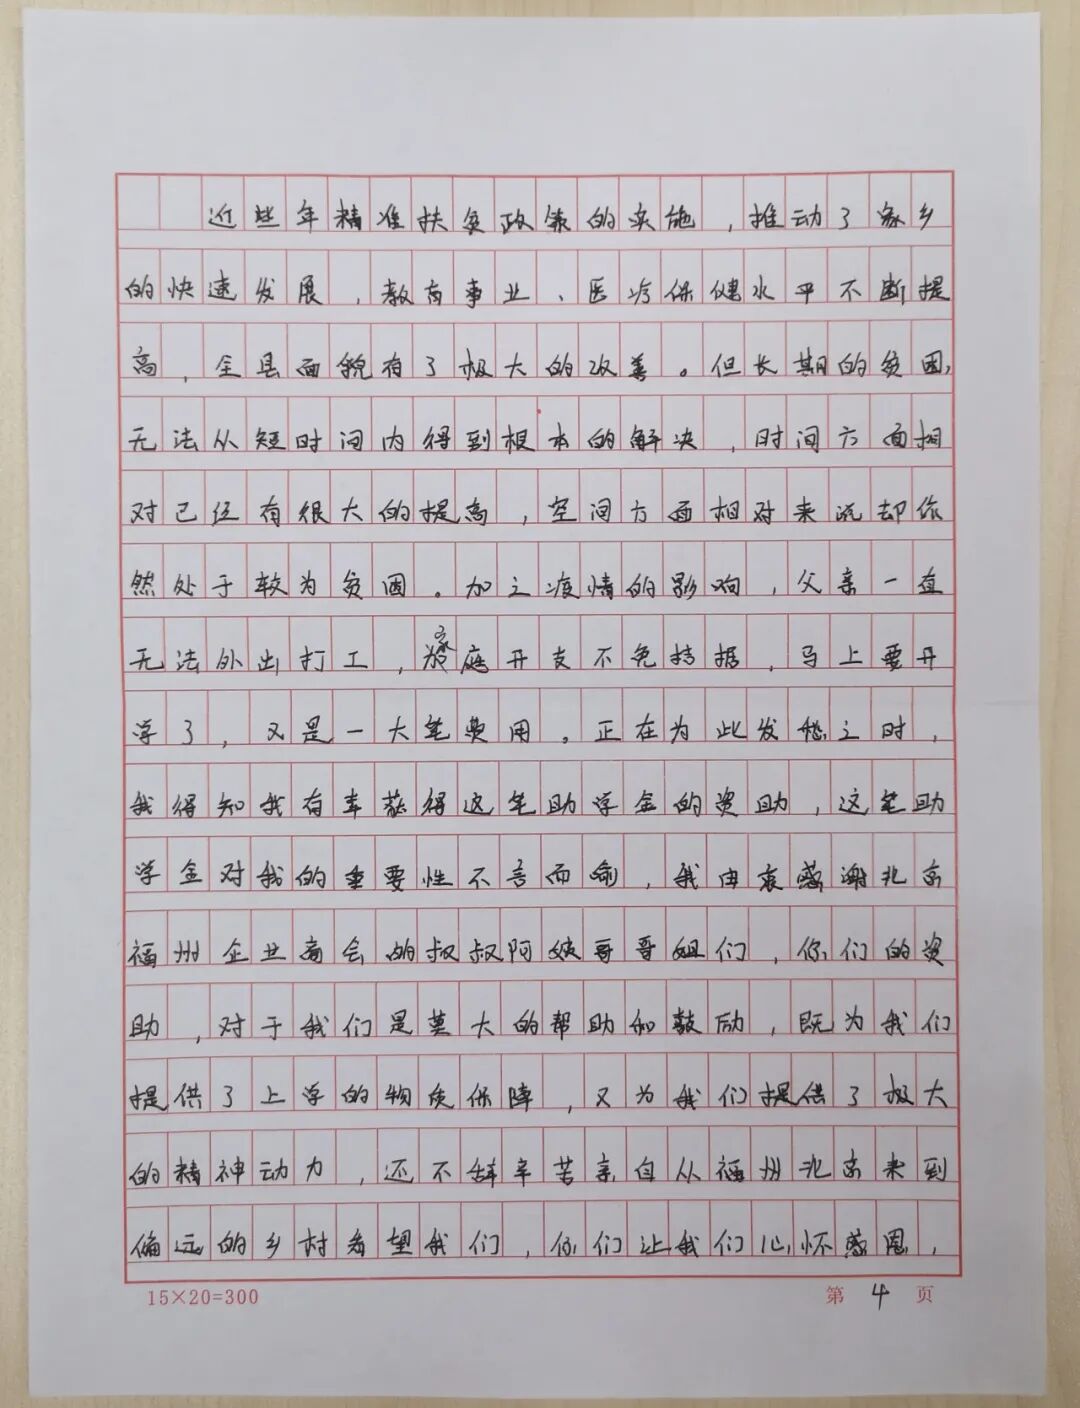 近些年精准扶贫政策的实施，推动了家乡
的快速发展，教育事业、医疗保健水平不断提
高，全县面貌有了极大的改善。但长期的贫困，
无法从短时间内得到根本的解决，时间方面相
对已经有很大的提高，空间方面相对来说却依
然处于较为贫困。加之疫情的影响，父亲一直
无法外出打工，家庭开支不免拮据，马上要开
学了，又是一大笔费用。正在为此发愁之时，
我得知我有幸获得这笔助学金的资助，这笔助
学金对我的重要性不言而喻，我由衷感谢北京
福州企业商会的叔叔阿姨哥哥姐们，你们的资
助，对于我们是莫大的帮助和鼓励，既为我们
提供了上学的物质保障，又为我们提供了极大
的精神动力，还不辞辛苦亲自从福州北京来到
偏远的乡村看望我们，你们让我们心怀感恩，
15×20=300 第4页